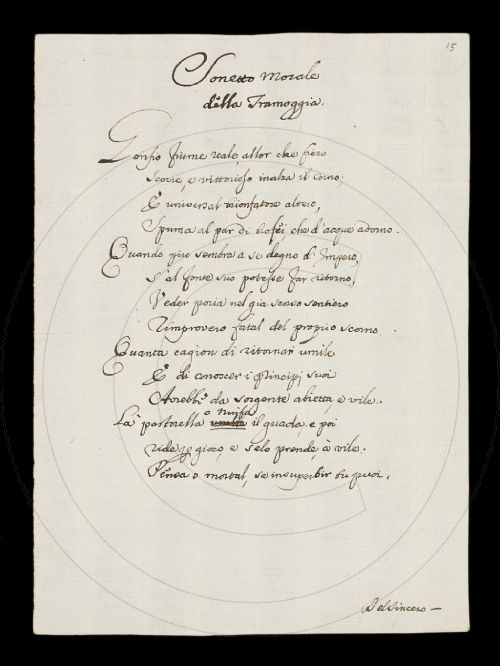 15
Sonetto Morale
della Tramoggia.
Gonfio fiume reale, allor che fiero
Scorre, e vittorioso inalza il corno,
E universal trionfatore altero,
Spuma al par di trofei, che d'acque adorno.
Quando più sembra a se degno d'Impero,
S'al fonte suo potesse far ritorno,
Veder poria nel già scorso sentiero
Rimprovero fatal del proprio scorno.
Quanta cagion di ritornar umile
E di conoscer i principj suoi
Avrebbe da sorgente abietta, e vile.
o Ninfa
La pastorella il guada, e poi
ride e gioco e se lo prende, à vile.
Pensa o mortal, se insuperbir tu puoi.
Del Sincero